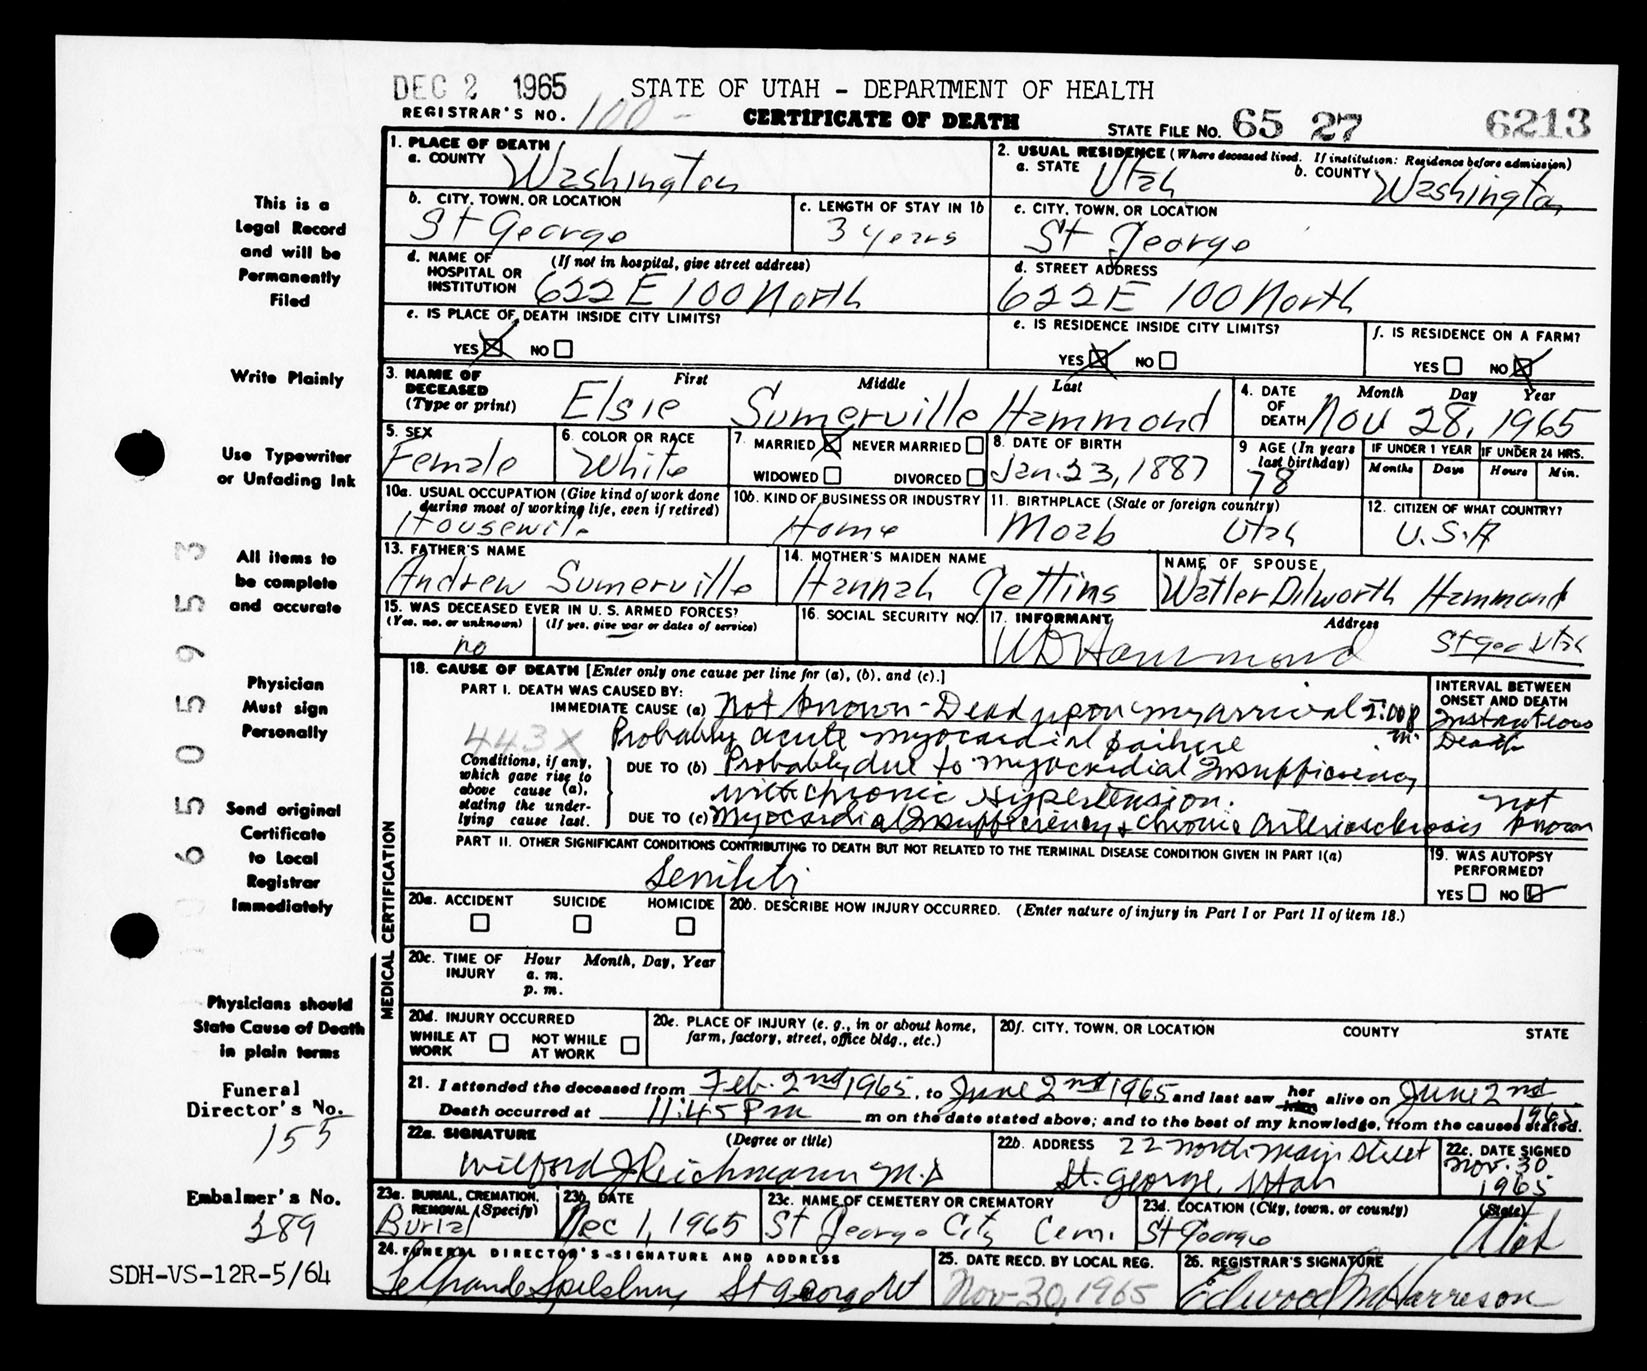 DEC 2 1965 STATE OF UTAH - DEPARTMENT OF HEALTH
REGISTRAR'S NO. 100 - CERTIFICATE OF DEATH STATE FILE NO. 65 27 6213
This is a
Legal Record
and will be
Permanently
Filed
Write Plainly
Use Typewriter
or Unfading Ink
All items to
be complete
and accurate
Physician
Must sign
Personally
Send original
Certificate
to Local
Registrar
Immediately
Physicians should
State Cause of Death
in plain terms
Funeral
Director's No.
155
Embalmer's No.
389
SDH-VS-12R-5/64
065055953
1. PLACE OF DEATH
a. COUNTY Washington
2. USUAL RESIDENCE (Where deceased lived. If institution: Residence before admission)
a. STATE Utah b. COUNTY Washington
b. CITY, TOWN, OR LOCATION St George
c. LENGTH OF STAY IN 1b 3 years
c. CITY, TOWN, OR LOCATION St George
d. NAME OF HOSPITAL OR INSTITUTION (If not in hospital, give street address) 622 E 100 North
d. STREET ADDRESS 622 E 100 North
e. IS PLACE OF DEATH INSIDE CITY LIMITS?
YES NO
e. IS RESIDENCE INSIDE CITY LIMITS?
YES NO
f. IS RESIDENCE ON A FARM?
YES NO
3. NAME OF DECEASED (Type or print) First Middle Last
Elsie Sumerville Hammond
4. DATE OF DEATH Month Day Year
Nov 28, 1965
5. SEX Female
6. COLOR OR RACE White
7. MARRIED NEVER MARRIED
WIDOWED DIVORCED
8. DATE OF BIRTH Jan. 23, 1887
9 AGE (In years last birthday) 78
IF UNDER 1 YEAR Months Days
IF UNDER 24 HRS. Hours Min.
10a. USUAL OCCUPATION (Give kind of work done during most of working life, even if retired) Housewife
10b. KIND OF BUSINESS OR INDUSTRY Home
11. BIRTHPLACE (State or foreign country) Moab Utah
12. CITIZEN OF WHAT COUNTRY? U.S.A
13. FATHER'S NAME Andrew Sumerville
14. MOTHER'S MAIDEN NAME Hannah Gettins
NAME OF SPOUSE Watler Dilworth Hammond
15. WAS DECEASED EVER IN U. S. ARMED FORCES?
(Yes, no, or unknown) (If yes, give war or dates of service)
no
16. SOCIAL SECURITY NO.
17. INFORMANT Address
W D Hammond St Geo Utah
MEDICAL CERTIFICATION
18. CAUSE OF DEATH [Enter only one cause per line for (a), (b), and (c).]
INTERVAL BETWEEN ONSET AND DEATH
PART I. DEATH WAS CAUSED BY:
IMMEDIATE CAUSE (a) Not known - Dead upon my arrival
Probably acute myocardial failure
443X
Death
Conditions, if any, which gave rise to above cause (a), stating the underlying cause last.
DUE TO (b) Probably due to myocardial Insufficiency
with chronic Hypertension.
DUE TO (c) Myocardial Insufficiency & chronic arteriosclerosis
not known
PART II. OTHER SIGNIFICANT CONDITIONS CONTRIBUTING TO DEATH BUT NOT RELATED TO THE TERMINAL DISEASE CONDITION GIVEN IN PART I(a)
19. WAS AUTOPSY PERFORMED?
YES NO
20a. ACCIDENT SUICIDE HOMICIDE
20b. DESCRIBE HOW INJURY OCCURRED. (Enter nature of injury in Part I or Part II of item 18.)
20c. TIME OF INJURY Hour Month, Day, Year
a. m.
p. m.
20d. INJURY OCCURRED
WHILE AT WORK NOT WHILE AT WORK
20e. PLACE OF INJURY (e. g., in or about home, farm, factory, street, office bldg., etc.)
20f. CITY, TOWN, OR LOCATION COUNTY STATE
21. I attended the deceased from Feb. 2nd 1965, to June 2nd 1965 and last saw her him alive on June 2nd 1965
Death occurred at 11:45 Pm m on the date stated above; and to the best of my knowledge, from the causes stated.
22a. SIGNATURE (Degree or title)
Wilford J Reichmann M.D
22b. ADDRESS 22 North Main Street
St. George, Utah
22c. DATE SIGNED
Nov. 30
1965
23a. BURIAL, CREMATION, REMOVAL (Specify) Burial
23b. DATE Dec 1, 1965
23c. NAME OF CEMETERY OR CREMATORY St George City Cem.
23d. LOCATION (City, town, or county) (State) St George Utah
24. FUNERAL DIRECTOR'S SIGNATURE AND ADDRESS
Spilsbury St George Ut
25. DATE RECD. BY LOCAL REG.
Nov 30, 1965
26. REGISTRAR'S SIGNATURE